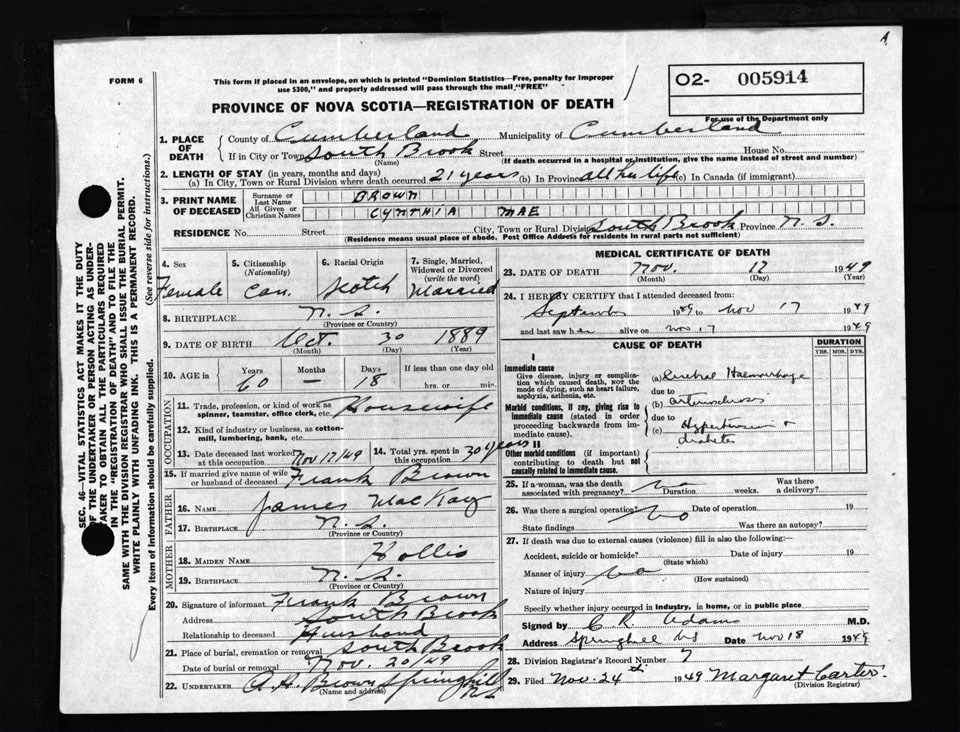 A
FORM 6
This form if placed in an envelope, on which is printed "Dominion Statistics—Free, penalty for improper
use $300," and properly addressed will pass through the mail "FREE"
O2- 005914
For use of the Department only
PROVINCE OF NOVA SCOTIA—REGISTRATION OF DEATH
1. PLACE OF DEATH { County of Cumberland Municipality of Cumberland
If in City or Town South Brook Street House No.
(Name) (If death occurred in a hospital or institution, give the name instead of street and number)
2. LENGTH OF STAY (in years, months and days)
(a) In City, Town or Rural Division where death occurred 21 years (b) In Province all her life (c) In Canada (if immigrant)
3. PRINT NAME OF DECEASED { Surname or Last Name BROWN
All Given or Christian Names CYNTHIA MAE
RESIDENCE No. Street City, Town or Rural Division South Brook Province N.S.
(Residence means usual place of abode. Post Office Address for residents in rural parts not sufficient)
4. Sex Female
5. Citizenship (Nationality) Can.
6. Racial Origin Scotch
7. Single, Married, Widowed or Divorced (write the word) Married
8. BIRTHPLACE N.S.
(Province or Country)
9. DATE OF BIRTH Oct. 30 1889
(Month) (Day) (Year)
10. AGE in { Years Months Days If less than one day old
60 — 18 hrs. or min.
OCCUPATION
11. Trade, profession, or kind of work as spinner, teamster, office clerk, etc. Housewife
12. Kind of industry or business, as cotton-mill, lumbering, bank, etc.
13. Date deceased last worked at this occupation Nov 17/49 14. Total yrs. spent in this occupation 30 years
15. If married give name of wife or husband of deceased Frank Brown
FATHER
16. NAME James MacKay
17. BIRTHPLACE N.S.
(Province or Country)
MOTHER
18. MAIDEN NAME Hollis
19. BIRTHPLACE N.S.
(Province or Country)
20. Signature of informant Frank Brown
Address South Brook
Relationship to deceased Husband
21. Place of burial, cremation or removal South Brook
Date of burial or removal Nov. 20/49
22. UNDERTAKER A.H. Brown Springhill N.S.
(Name and address)
MEDICAL CERTIFICATE OF DEATH
23. DATE OF DEATH Nov. 17 1949
(Month) (Day) (Year)
24. I HEREBY CERTIFY that I attended deceased from:
September 1949 to Nov 17 1949
and last saw her alive on Nov 17 1949
CAUSE OF DEATH
DURATION
YRS. MOS. DYS.
I
Immediate cause
Give disease, injury or complication which caused death, NOT the mode of dying, such as heart failure, asphyxia, asthenia, etc.
(a) Cerebral Haemorrhage
due to
Morbid conditions, if any, giving rise to immediate cause (stated in order proceeding backwards from immediate cause).
(b) arteriosclerosis
due to
(c) Hypertension & diabetes
II
Other morbid conditions (if important) contributing to death but not causally related to immediate cause.
25. If a woman, was the death associated with pregnancy? no Duration weeks. Was there a delivery?
26. Was there a surgical operation? No Date of operation 19
State findings Was there an autopsy?
27. If death was due to external causes (violence) fill in also the following:—
Accident, suicide or homicide? Date of injury 19
(State which)
Manner of injury no
(How sustained)
Nature of injury
Specify whether injury occurred in industry, in home, or in public place
Signed by C. R. Adams M.D.
Address Springhill NS Date Nov 18 1949
28. Division Registrar's Record Number 7
29. Filed Nov. 24th 1949 Margaret Carter.
(Division Registrar)
SEC. 46—VITAL STATISTICS ACT MAKES IT THE DUTY
OF THE UNDERTAKER OR PERSON ACTING AS UNDER-
TAKER TO OBTAIN ALL THE PARTICULARS REQUIRED
IN THE "REGISTRATION OF DEATH" AND TO FILE THE
SAME WITH THE DIVISION REGISTRAR WHO SHALL ISSUE THE BURIAL PERMIT.
WRITE PLAINLY WITH UNFADING INK. THIS IS A PERMANENT RECORD.
Every item of information should be carefully supplied. (See reverse side for instructions.)